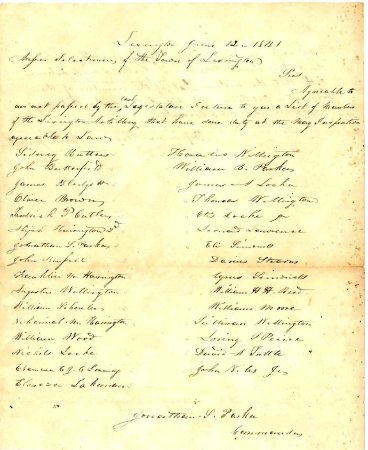 Lexington June 12 - 1841
Messrs Selectmen of the Town of Lexington
Sirs
Agreeable to
an act passed by the Legislature I return to you a List of members
of the Lexington Artillery that have done duty at the May Inspection
agreeable to Law
Sidney Butters
John Butterfield
James Blodgett
Oliver Brown
Frederick P Cutler
Elijah Harrington 3d
Johnathan S. Parker
John
Franklin M. Harrington
Augustus Wellington
William
Nehemiah M. Harrington
William Wood
Nichols Locke
Ebenezer
Ebenezer Lakeman
Horatio Wellington
William B. Parker
James A Locke
Thomas Wellington
Otis Locke Jr
Leonard Lawrence
Eli Simonds
Daniel Stearns
Cyrus Simonds
William H H Reed
William More
Sullivan Wellington
Loring S Pierce
David A Tuttle
John Viles Jr
Jonathan S. Parker
Commander